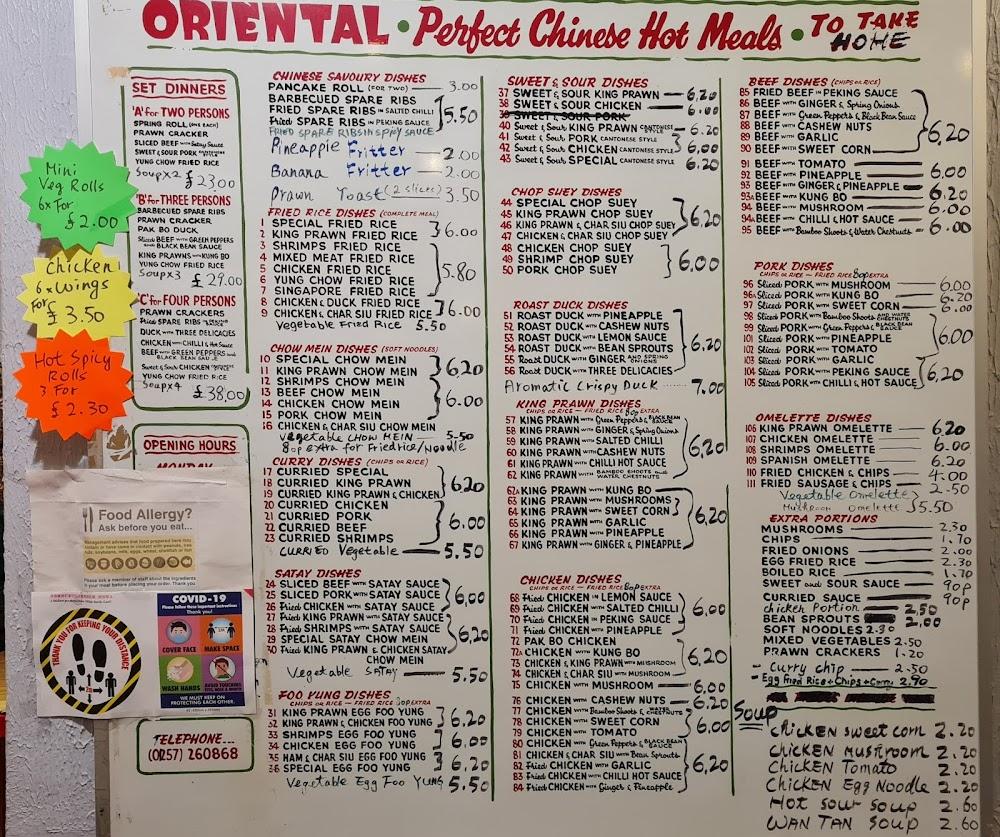 ORIENTAL • Perfect Chinese Hot Meals • TO TAKE HOME
SET DINNERS
'A' for TWO PERSONS
SPRING ROLL (ONE EACH)
PRAWN CRACKER
SLICED BEEF with Satay Sauce
SWEET & SOUR PORK
YUNG CHOW FRIED RICE
Soup x 2 £23.00
'B' for THREE PERSONS
BARBECUED SPARE RIBS
PRAWN CRACKER
PAK BO DUCK
Sliced BEEF with GREEN PEPPERS and BLACK BEAN SAUCE
KING PRAWNS with KUNG BO
YUNG CHOW FRIED RICE
Soup x 3 £29.00
'C' for FOUR PERSONS
PRAWN CRACKERS
Fried SPARE RIBS
DUCK with THREE DELICACIES
CHICKEN with CHILLI & Hot Sauce
BEEF with GREEN PEPPERS and BLACK BEAN SAUCE
Sweet & Sour CHICKEN
YUNG CHOW FRIED RICE
Soup x 4 £38.00
Mini
Veg Rolls
6x For
£2.00
Chicken
6x Wings
For £3.50
Hot Spicy
Rolls
3 For
£2.30
OPENING HOURS
MONDAY
Food Allergy?
Ask before you eat...
Please ask a member of staff about the ingredients in your meal before placing your order. Thank you
THANK YOU FOR KEEPING YOUR DISTANCE
2m
COVID-19
Please follow these important instructions
Thank you!
COVER FACE
MAKE SPACE
WASH HANDS
AVOID TOUCHING EYES, NOSE & MOUTH
WE MUST KEEP ON PROTECTING EACH OTHER.
TELEPHONE...
(0257) 260868
CHINESE SAVOURY DISHES
PANCAKE ROLL (FOR TWO) 3.00
BARBECUED SPARE RIBS
FRIED SPARE RIBS in SALTED CHILLI 5.50
Fried SPARE RIBS in PEKING SAUCE
FRIED SPARE RIBS IN SPICY SAUCE
Pineapple Fritter 2.00
Banana Fritter 2.00
Prawn Toast (2 slices) 3.50
FRIED RICE DISHES (COMPLETE MEAL)
1 SPECIAL FRIED RICE
2 KING PRAWN FRIED RICE 6.00
3 SHRIMPS FRIED RICE
4 MIXED MEAT FRIED RICE
5 CHICKEN FRIED RICE 5.80
6 YUNG CHOW FRIED RICE
7 SINGAPORE FRIED RICE
8 CHICKEN & DUCK FRIED RICE
9 CHICKEN & CHAR SIU FRIED RICE 6.00
Vegetable Fried Rice 5.50
CHOW MEIN DISHES (SOFT NOODLES)
10 SPECIAL CHOW MEIN
11 KING PRAWN CHOW MEIN 6.20
12 SHRIMPS CHOW MEIN
13 BEEF CHOW MEIN
14 CHICKEN CHOW MEIN 6.00
15 PORK CHOW MEIN
16 CHICKEN & CHAR SIU CHOW MEIN
Vegetable CHOW MEIN 5.50
80p Extra for Fried rice/Noodle
CURRY DISHES (CHIPS OR RICE)
17 CURRIED SPECIAL
18 CURRIED KING PRAWN 6.20
19 CURRIED KING PRAWN & CHICKEN
20 CURRIED CHICKEN
21 CURRIED PORK
22 CURRIED BEEF 6.00
23 CURRIED SHRIMPS
CURRIED Vegetable 5.50
SATAY DISHES
24 SLICED BEEF with SATAY SAUCE
25 SLICED PORK with SATAY SAUCE 6.00
26 Fried CHICKEN with SATAY SAUCE
27 Fried KING PRAWN with SATAY SAUCE
28 Fried SHRIMPS with SATAY SAUCE
29 SPECIAL SATAY CHOW MEIN 6.20
30 Fried KING PRAWN & CHICKEN SATAY CHOW MEIN
Vegetable SATAY 5.50
FOO YUNG DISHES
CHIPS OR RICE - FRIED RICE 80p EXTRA
31 KING PRAWN EGG FOO YUNG
32 KING PRAWN & CHICKEN FOO YUNG 6.20
33 SHRIMPS EGG FOO YUNG
34 CHICKEN EGG FOO YUNG 6.00
35 HAM & CHAR SIU EGG FOO YUNG
36 SPECIAL EGG FOO YUNG 6.20
Vegetable Egg Foo Yung 5.50
SWEET & SOUR DISHES
37 SWEET & SOUR KING PRAWN 6.20
38 SWEET & SOUR CHICKEN 6.00
39 SWEET & SOUR PORK
40 Sweet & Sour KING PRAWN CANTONESE STYLE 6.20
41 Sweet & Sour PORK CANTONESE STYLE
42 Sweet & Sour CHICKEN CANTONESE STYLE 6.00
43 Sweet & Sour SPECIAL CANTONESE STYLE 6.20
CHOP SUEY DISHES
44 SPECIAL CHOP SUEY
45 KING PRAWN CHOP SUEY
46 KING PRAWN & CHAR SIU CHOP SUEY 6.20
47 CHICKEN & CHAR SIU CHOP SUEY
48 CHICKEN CHOP SUEY
49 SHRIMP CHOP SUEY 6.00
50 PORK CHOP SUEY
ROAST DUCK DISHES
51 ROAST DUCK with PINEAPPLE
52 ROAST DUCK with CASHEW NUTS
53 ROAST DUCK with LEMON SAUCE
54 ROAST DUCK with BEAN SPROUTS 6.20
55 Roast DUCK with GINGER AND SPRING ONIONS
56 ROAST DUCK with THREE DELICACIES
Aromatic Crispy Duck 7.00
KING PRAWN DISHES
CHIPS OR RICE - FRIED RICE 80p EXTRA
57 KING PRAWN with Green Peppers & BLACK BEAN SAUCE
58 KING PRAWN with GINGER & Spring Onions
59 KING PRAWN with SALTED CHILLI
60 KING PRAWN with CASHEW NUTS 6.20
61 KING PRAWN with CHILLI HOT SAUCE
62 KING PRAWN with BAMBOO SHOOTS and WATER CHESTNUTS
62A KING PRAWN with KUNG BO
63 KING PRAWN with MUSHROOMS
64 KING PRAWN with SWEET CORN
65 KING PRAWN with GARLIC 6.20
66 KING PRAWN with PINEAPPLE
67 KING PRAWN with GINGER & PINEAPPLE
CHICKEN DISHES
CHIPS OR RICE - FRIED RICE 80p EXTRA
68 Fried CHICKEN in LEMON SAUCE
69 Fried CHICKEN with SALTED CHILLI
70 Fried CHICKEN in PEKING SAUCE 6.00
71 Fried CHICKEN with PINEAPPLE
72 PAK BO CHICKEN
72A CHICKEN with KUNG BO
73 CHICKEN & KING PRAWN with MUSHROOM 6.20
74 CHICKEN & CHAR SIU with MUSHROOM
75 CHICKEN with MUSHROOM 6.00
76 CHICKEN with CASHEW NUTS 6.20
77 CHICKEN with Bamboo Shoots & Water Chestnuts
78 CHICKEN with SWEET CORN 6.00
79 CHICKEN with TOMATO
80 CHICKEN with Green Peppers & BLACK BEAN SAUCE
81 CHICKEN & CHAR SIU with Bean Sprouts
82 Fried CHICKEN with GARLIC 6.20
83 Fried CHICKEN with CHILLI HOT SAUCE
84 Fried CHICKEN with Ginger & Pineapple
BEEF DISHES (CHIPS OR RICE)
85 FRIED BEEF in PEKING SAUCE
86 BEEF with GINGER & Spring Onions
87 BEEF with Green Peppers & Black Bean Sauce
88 BEEF with CASHEW NUTS 6.20
89 BEEF with GARLIC
90 BEEF with SWEET CORN
91 BEEF with TOMATO
92 BEEF with PINEAPPLE 6.00
93 BEEF with GINGER & PINEAPPLE 6.20
93A BEEF with KUNG BO 6.20
94 BEEF with MUSHROOM 6.00
94A BEEF with CHILLI & HOT SAUCE
95 BEEF with Bamboo Shoots & Water Chestnuts 6.00
PORK DISHES
CHIPS OR RICE - FRIED RICE 80p EXTRA
96 Sliced PORK with MUSHROOM 6.00
96A Sliced PORK with KUNG BO 6.20
97 Sliced PORK with SWEET CORN 6.00
98 Sliced PORK with Bamboo Shoots and WATER CHESTNUTS
99 Sliced PORK with Green Peppers & BLACK BEAN SAUCE
101 Sliced PORK with PINEAPPLE 6.00
102 Sliced PORK with TOMATO
103 Sliced PORK with GARLIC
104 Sliced PORK with PEKING SAUCE 6.20
105 Sliced PORK with CHILLI & HOT SAUCE
OMELETTE DISHES
106 KING PRAWN OMELETTE 6.20
107 CHICKEN OMELETTE
108 SHRIMPS OMELETTE 6.00
109 SPANISH OMELETTE 6.20
110 FRIED CHICKEN & CHIPS 4.00
111 FRIED SAUSAGE & CHIPS 2.50
Vegetable Omelette
Mushroom omelette 5.50
EXTRA PORTIONS
MUSHROOMS 2.30
CHIPS 1.70
FRIED ONIONS 2.00
EGG FRIED RICE 2.30
BOILED RICE 1.70
SWEET and SOUR SAUCE 90p
CURRIED SAUCE 90p
chicken Portion 2.50
BEAN SPROUTS 2.00
SOFT NOODLES 2.30
MIXED VEGETABLES 2.50
PRAWN CRACKERS 1.20
Curry chip 2.50
Egg Fried Rice + Chips + Curry 2.90
Soup
chicKEN sweet corn 2.20
CHICKEN MUSHROOM 2.20
CHICKEN Tomato 2.20
CHICKEN Egg Noodle 2.20
Hot Sour Soup 2.60
WAN TAN SOUP 2.60